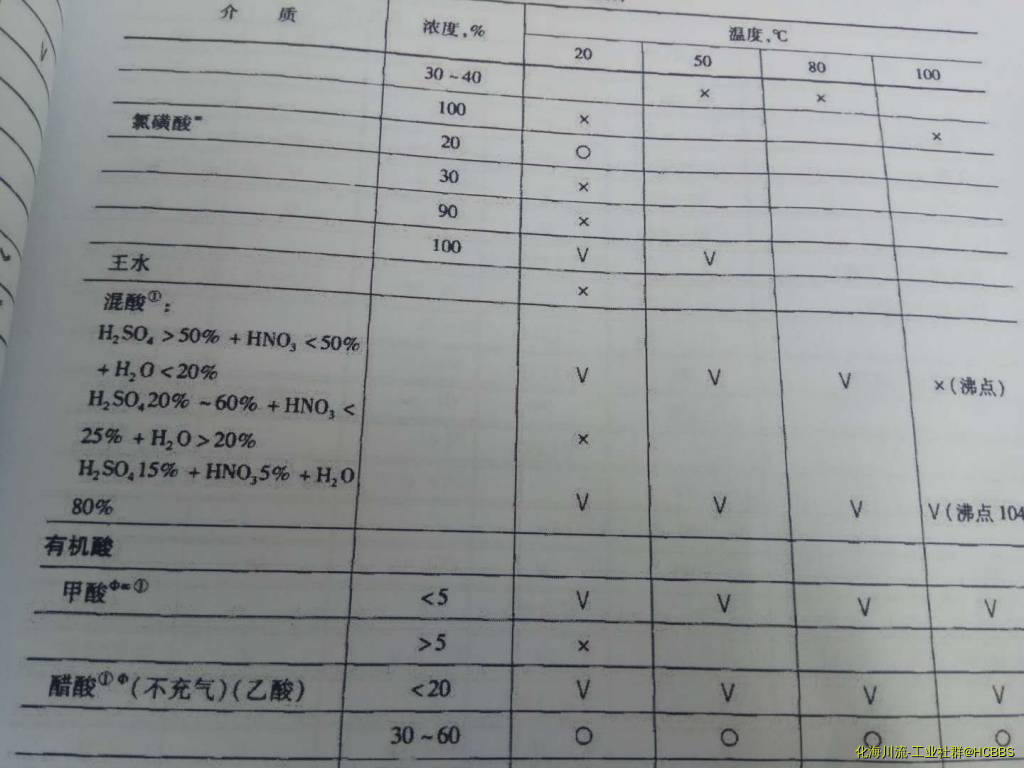 介 质 浓度,% 温度,℃
20 50 80 100
30~40 × ×
100 × ×
氯磺酸 20 ○
30 ×
90 ×
100 V V
王水 ×
混酸①:
H₂SO₄>50% + HNO₃<50%
+ H₂O<20% V V V ×(沸点)
H₂SO₄20% ~60% + HNO₃<
25% + H₂O>20% ×
H₂SO₄15% + HNO₃5% + H₂O
80% V V V V(沸点104
有机酸
甲酸 <5 V V V V
>5 ×
醋酸①Φ(不充气)(乙酸) <20 V V V V
30~60 ○ ○ ○ ○
化海川流-工业社群@HCBBS